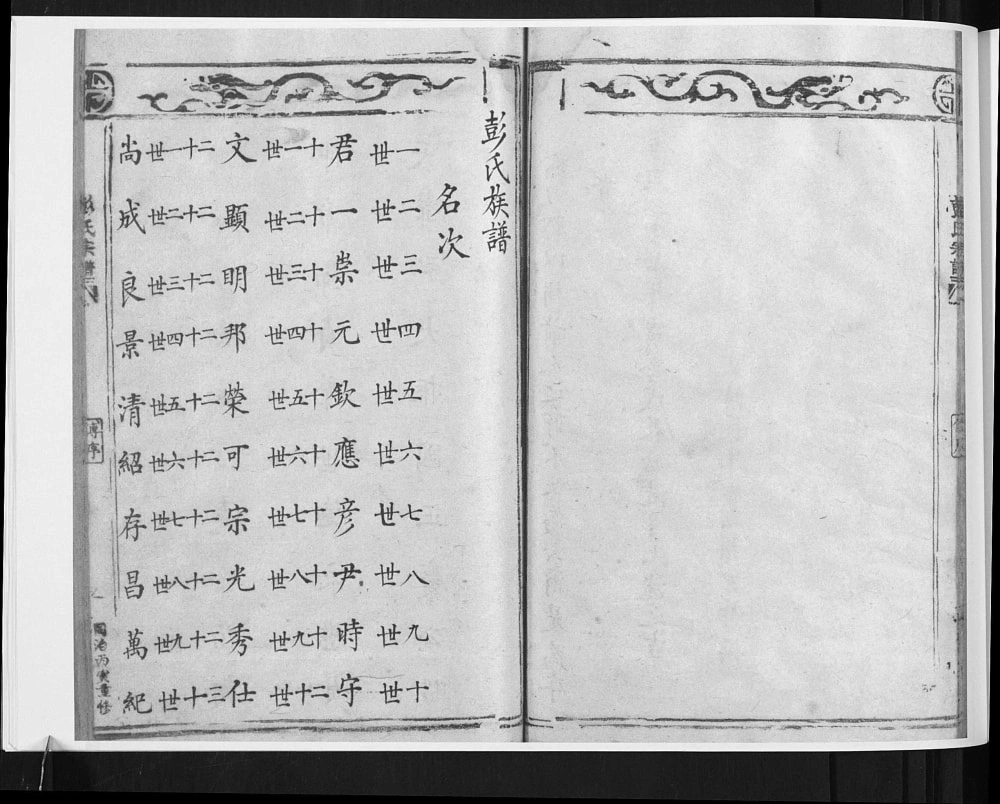 彭氏族譜
名次
一世 二世 三世 四世 五世 六世 七世 八世 九世 十世
君 一 崇 元 欽 應 彦 尹 時 守
十一世 十二世 十三世 十四世 十五世 十六世 十七世 十八世 十九世 二十世
文 顯 明 邦 榮 可 宗 光 秀 仕
二十一世 二十二世 二十三世 二十四世 二十五世 二十六世 二十七世 二十八世 二十九世 三十世
尚 成 良 景 清 紹 存 昌 萬 紀
彭氏宗譜
同治丙寅重修